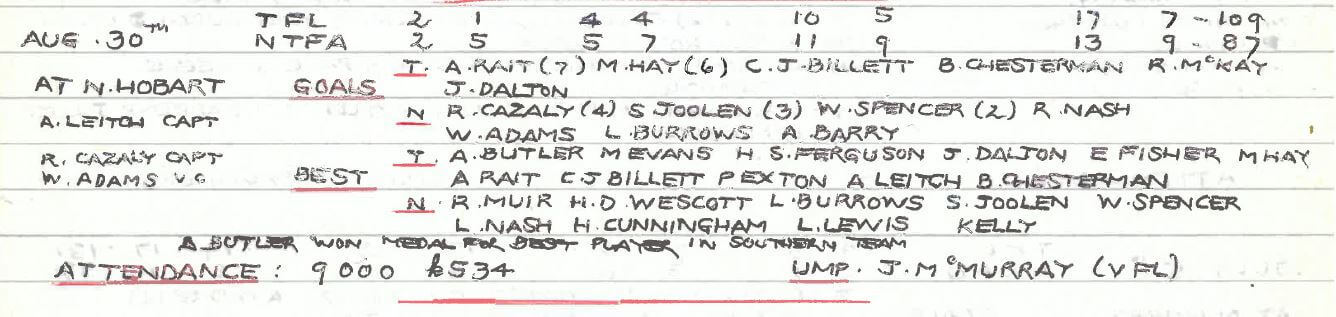 TFL 2 1 4 4 10 5 17 7 - 109
AUG. 30TH NTFA 2 5 5 7 11 9 13 9 - 87
AT N. HOBART GOALS T. A. RAIT (7) M. HAY (6) C. J. BILLETT B. CHESTERMAN R. McKAY
J. DALTON
A. LEITCH CAPT N R. CAZALY (4) S JOOLEN (3) W. SPENCER (2) R. NASH
W. ADAMS L. BURROWS A. BARRY
R. CAZALY CAPT T. A. BUTLER M EVANS H S. FERGUSON J. DALTON E FISHER M HAY
W. ADAMS V C BEST A RAIT C J BILLETT P EXTON A LEITCH B. CHESTERMAN
N. R. MUIR H. D. WESCOTT L. BURROWS S. JOOLEN W. SPENCER
L. NASH H. CUNNINGHAM L. LEWIS KELLY
A BUTLER WON MEDAL FOR BEST PLAYER IN SOUTHERN TEAM
ATTENDANCE: 9000 £534 UMP. J. McMURRAY (VFL)